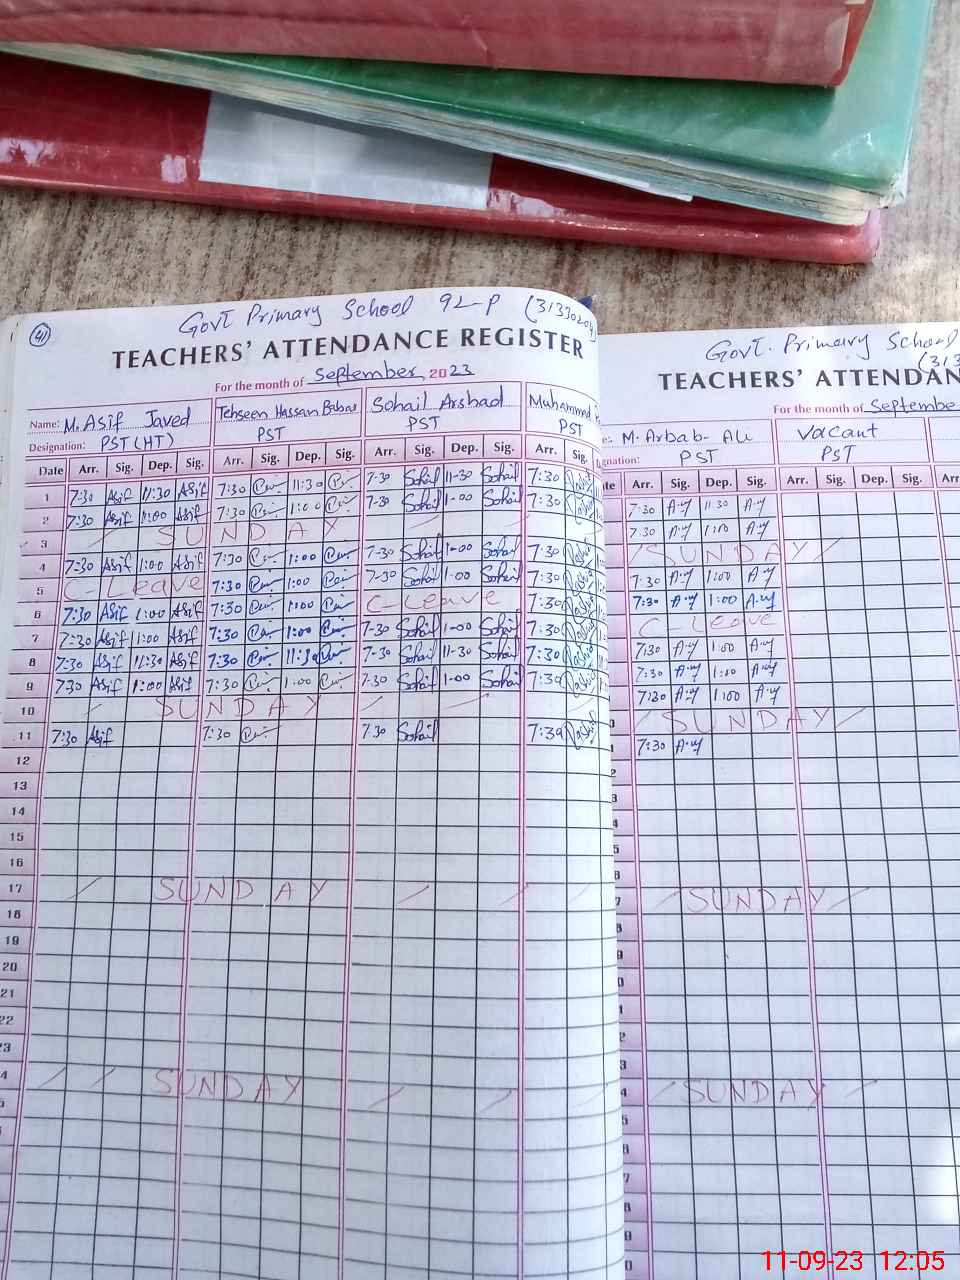 91
Govt Primary School 92-P
TEACHERS' ATTENDANCE REGISTER
For the month of September 2023
Name: M. Asif Javed
Tehseen Hassan Babar
Sohail Arshad
Muhammad
Designation: PST (HT)
PST
PST
PST
Date Arr. Sig. Dep. Sig. Arr. Sig. Dep. Sig. Arr. Sig. Dep. Sig. Arr. Sig.
1 7:30 Asif 11:30 Asif 7:30 11:30 7-30 Sohail 11-30 Sohail 7:30
2 7:30 Asif 1:00 Asif 7:30 1:00 7-30 Sohail 1-00 Sohail 7:30
3 SUNDAY
4 7:30 Asif 1:00 Asif 7:30 1:00 7-30 Sohail 1-00 Sohail 7:30
5 C-Leave 7:30 1:00 7-30 Sohail 1-00 Sohail 7:30
6 7:30 Asif 1:00 Asif 7:30 1:00 C-Leave 7:30
7 7:30 Asif 1:00 Asif 7:30 1:00 7-30 Sohail 1-00 Sohail 7:30
8 7:30 Asif 11:30 Asif 7:30 11:30 7-30 Sohail 11-30 Sohail 7:30
9 7:30 Asif 1:00 Asif 7:30 1:00 7-30 Sohail 1-00 Sohail 7:30
10 SUNDAY
11 7:30 Asif 7:30 7-30 Sohail 7:30
12
13
14
15
16
17 SUNDAY
18
19
20
21
22
23
4 SUNDAY
5
Govt. Primary School
(313
TEACHERS' ATTENDAN
For the month of Septembe
e: M. Arbab- Ali
Vacant
gnation: PST
PST
Date Arr. Sig. Dep. Sig. Arr. Sig. Dep. Sig. Arr
7:30 11:30
7:30 1:00
SUNDAY
7:30 1:00
7:30 1:00
C-Leave
7:30 1:00
7:30 1:00
7:30 1:00
SUNDAY
7:30
SUNDAY
SUNDAY
11-09-23 12:05